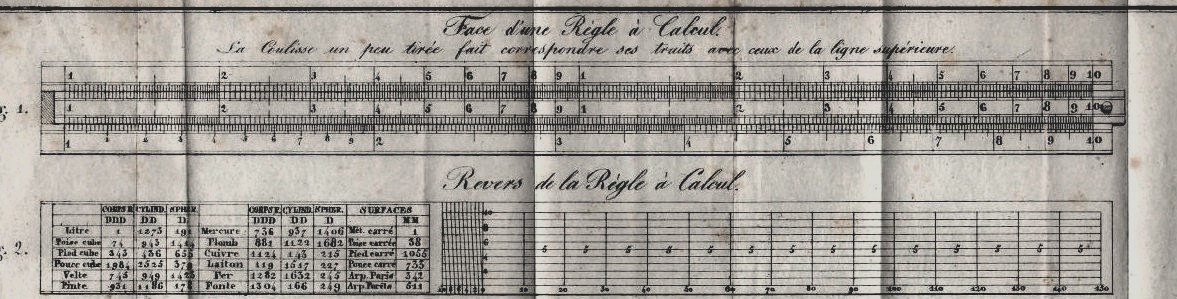 Face d'une Règle à Calcul.
La Coulisse un peu tirée fait correspondre ses traits avec ceux de la ligne supérieure.
1 2 3 4 5 6 7 8 9 1 2 3 4 5 6 7 8 9 10
1.
1 2 3 4 5 6 7 8 9 1 2 3 4 5 6 7 8 9 10
1 1 2 3 4 5 6 7 8 9 2 3 4 5 6 7 8 9 10
Revers de la Règle à Calcul.
CORPS R. CYLIND. SPHER. CORPS R. CYLIND. SPHER. SURFACES
DDD DD D DDD DD D MM
Litre 1 1273 191 Mercure 736 937 1406 Mèt. carré 1
Toise cube 74 943 Plomb 881 1122 1682 Toise carrée 38
2.
Pied cube 343 436 655 Cuivre 1124 143 215 Pied carré 1055
Pouce cube 1984 2525 Laiton 119 1517 227 Pouce carré 735
Velte 745 949 Fer 1282 1632 245 Arp. Paris 342
Pinte 931 1186 Fonte 1304 166 249 Arp. Forêts 511
10 8 6 4 2
5 5 5 5 5 5 5 5 5 5 5 5 5 5
10 8 6 4 2 0 10 20 30 40 50 60 70 80 90 100 110 120 130 140 150